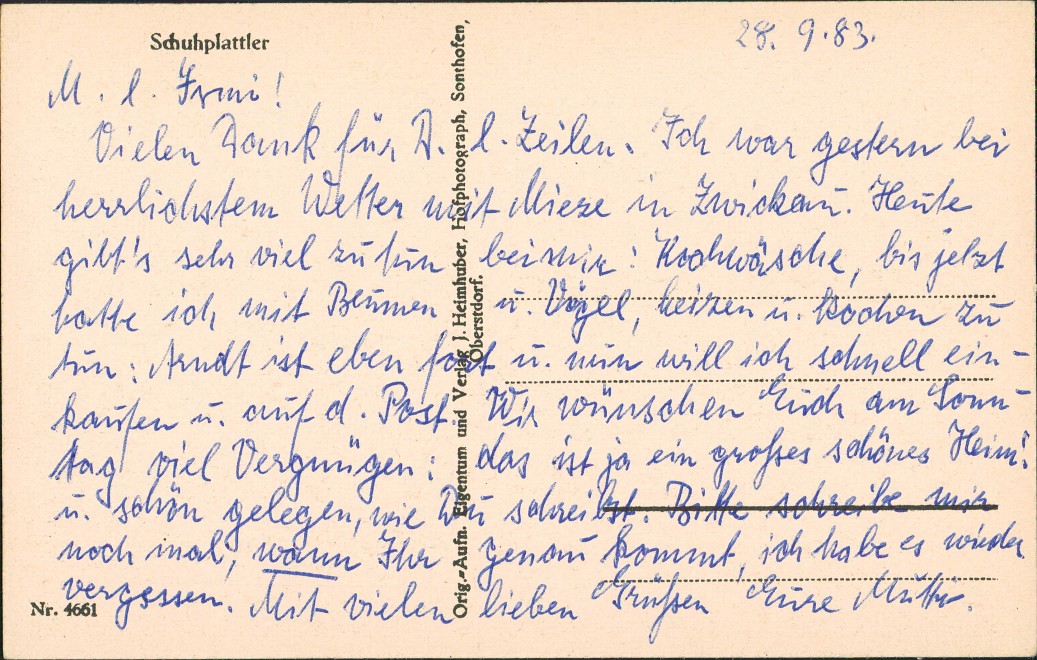 Schuhplattler
28. 9.83.
M. l. Irmi!
Vielen Dank für D. l. Zeilen. Ich war gestern bei
herrlichstem Wetter mit Mieze in Zwickau. Heute
gibt's sehr viel zu tun bei mir: Kochwäsche, bis jetzt
hatte ich mit Blumen u. Vögel, heizen u. kochen zu
tun: Arndt ist eben fort u. nun will ich schnell ein-
kaufen u. auf d. Post. Wir wünschen Euch am Sonn-
tag viel Vergnügen: das ist ja ein großes schönes Heim!
u. schön gelegen, wie Du schreibst. Bitte schreibe mir
noch mal, wann Ihr genau kommt, ich habe es wieder
vergessen. Mit vielen lieben Grüßen Eure Mutti.
Nr. 4661
Orig.-Aufn. Eigentum und Verlag J. Heimhuber, Hofphotograph, Sonthofen,
Oberstdorf.